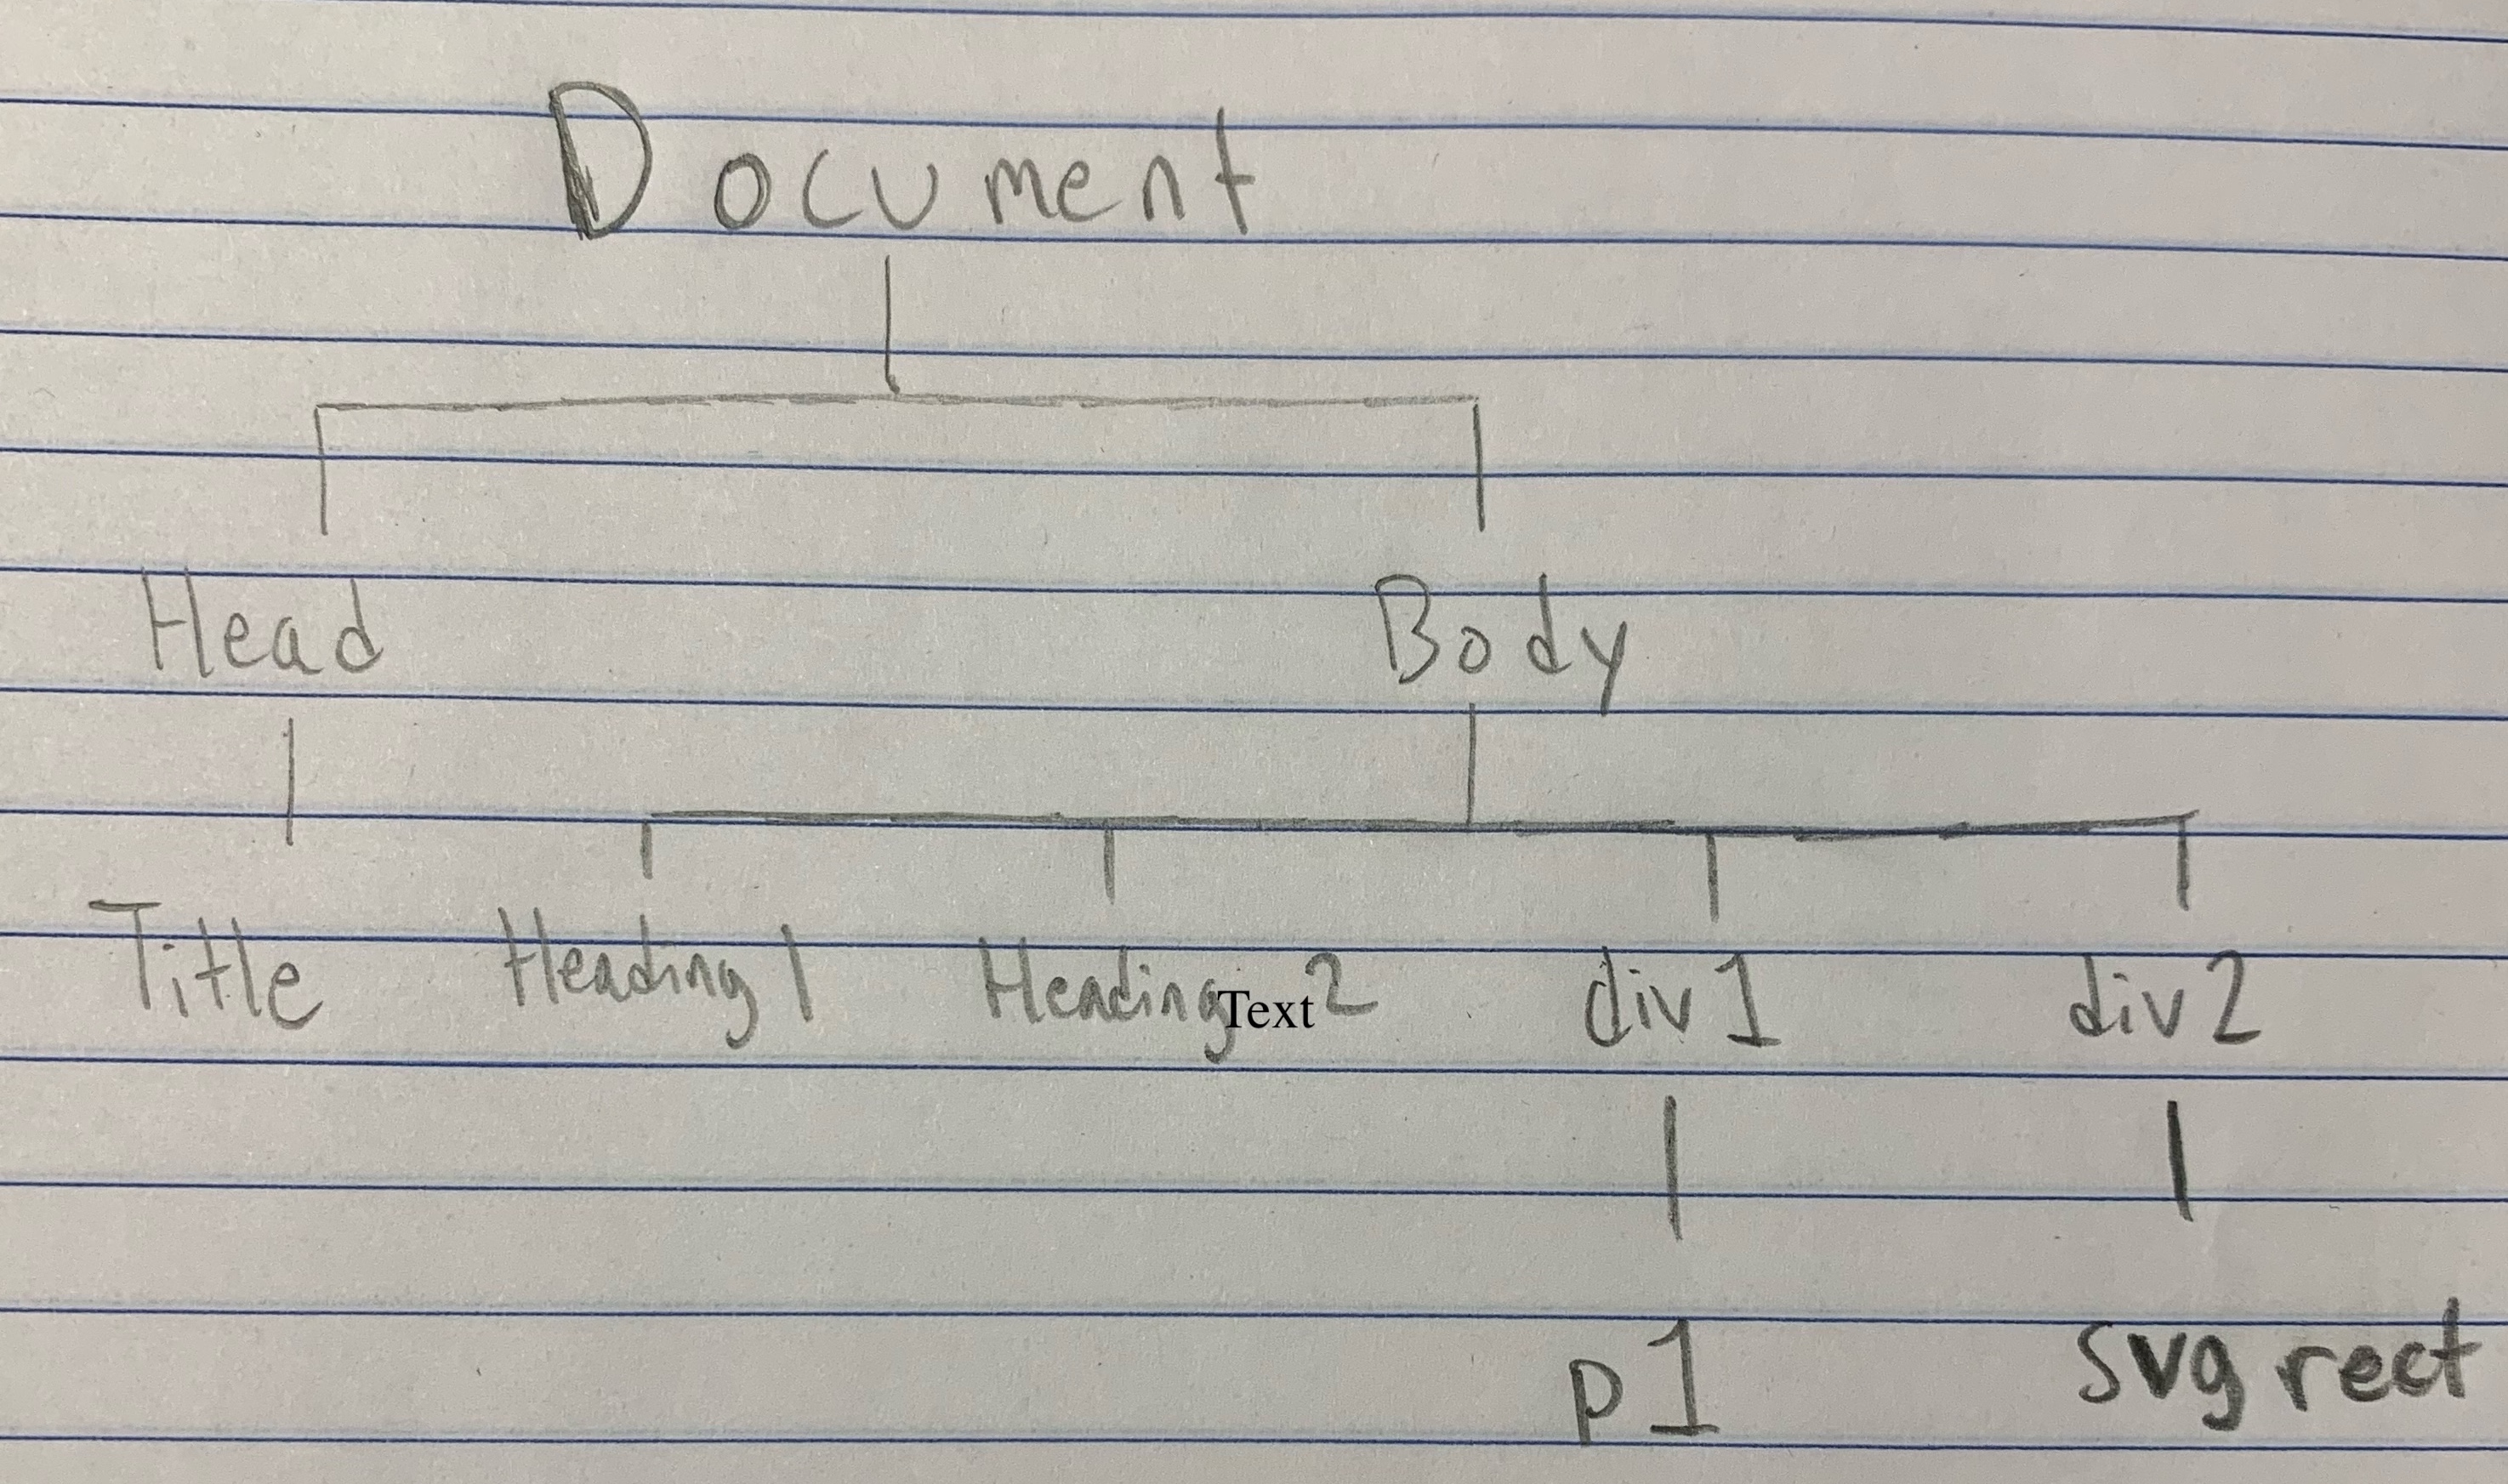 Document
Head Body
Title Heading 1 Heading 2 div 1 div 2
Text
p1 svg rect